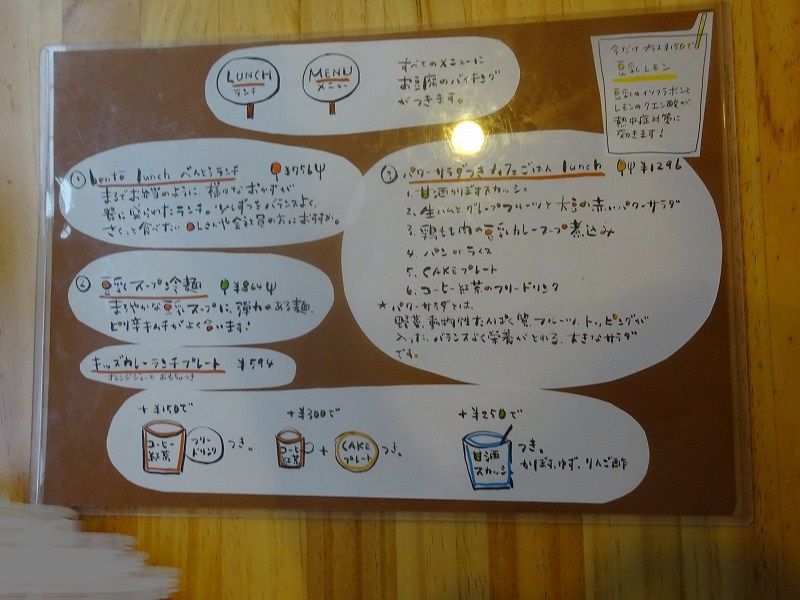 LUNCH
ランチ
MENU
メニュー
すべてのメニューに
お豆腐のバイキング
がつきます。
今だけプラス¥150で
豆乳レモン
豆乳のイソフラボンと
レモンのクエン酸が
熱中症対策に
効きます!
① bento lunch べんとうランチ ¥756
まるでお弁当のように、様々なおかずが
器に盛られたランチ。少しずつをバランスよく、
さくっと食べたいOLさんや会社員の方にお勧め。
② 豆乳スープ冷麺 ¥864
まろやかな豆乳スープに、弾力のある麺、
ピリ辛キムチがよく合います!
キッズカレーランチプレート ¥594
オレンジジュース、おもちゃつき
③ パワーサラダつきカフェごはん lunch ¥1296
1. 甘酒かぼすスカッシュ
2. 生ハムとグレープフルーツと大豆の赤いパワーサラダ
3. 鶏もも肉の豆乳カレースープ煮込み
4. パン or ライス
5. CAKEプレート
6. コーヒー紅茶のフリードリンク
★パワーサラダとは、
野菜、動物性たんぱく質、フルーツ、トッピングが
入った、バランスよく栄養がとれる、大きなサラダ
です。
+¥150で
コーヒー
紅茶
フリー
ドリンク
つき。
+¥300で
コーヒー
紅茶
+
CAKE
プレート
つき。
+¥250で
甘酒
スカッシュ
つき。
かぼす、ゆず、りんご酢